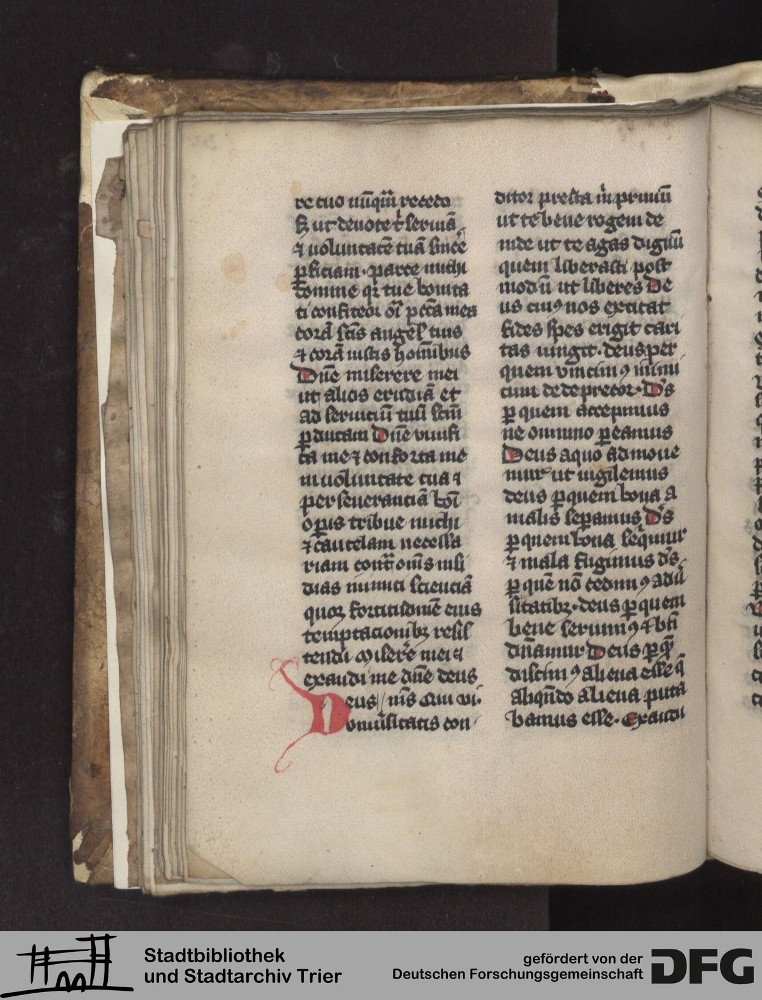 re tuo nūq̄m̄ recedo
ꝫ ut deuote t̄ seruiā
⁊ uoluntatē tuā sincē
ꝑficiam · parce michi
domine qꝛ tue bonita
ti confiteor oīa pctā mea
corā sctīs angel tuis
⁊ corā iustis hoīnibus
Dn̄e miserere mei
ut alios erudiā et
ad seruiciū tuū sctm̄
ꝑducam Dn̄e viuifi
ca me ⁊ conforta me
in uoluntate tua ⁊
perseuerantiā boī
oꝑis tribue michi
⁊ cautelam necessa
riam contᵃ om̄s insi
dias inimici scienciā
quoꝗ fortitudinē eius
temptacionibꝫ resis
tendi Miserē mei ⁊
exaudi me dn̄e deus
Deus nīs Qui vi
Dn̄iuīsitatis con
ditor presta m̄ primū
ut te bene rogem de
inde ut te agas dignū
quem liberasti post
modū ut liberes De
us cuiꝰ nos excitat
fides spes erigit cari
tas iungit · deus per
quem vincimꝰ inimi
cum de deprecor · D̄s
ꝑ quem accepimus
ne omnino ꝑeamus
Deus a quo admone
mur ut uigilemus
deus ꝑ quem bona a
malis seꝑamus D̄s
ꝑ quem bona sequimur
⁊ mala fugimus d̄s
ꝑ quē nō cedimꝰ adū
sitatibꝫ · deus ꝑ quem
bene seruimꝰ ⁊ bn̄
dn̄amur Deus ꝑ q̄
discimꝰ aliena esse q̄
aliqn̄do aliena puta
bamus esse · exaudi
Stadtbibliothek
und Stadtarchiv Trier
gefördert von der
Deutschen Forschungsgemeinschaft
DFG